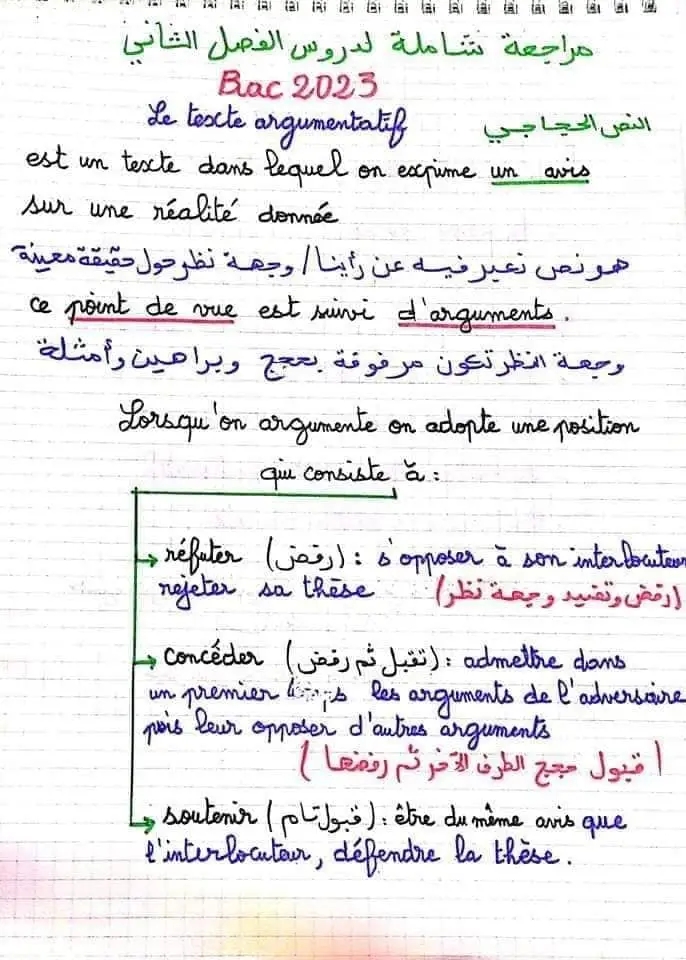 مراجعة شاملة لدروس الفصل الثاني
Bac 2023
Le texte argumentatif النص الحجاجي
est un texte dans lequel on exprime un avis
sur une réalité donnée
هو نص نعبر فيه عن رأينا / وجهة نظر حول حقيقة معينة
ce point de vue est suivi d'arguments.
وجهة النظر تكون مرفوقة بحجج وبراهين وأمثلة
Lorsqu'on argumente on adopte une position
qui consiste à :
réfuter (رفض) : s'opposer à son interlocuteur
rejeter sa thèse (رفض وتفنيد وجهة نظر)
concéder (تقبل ثم رفض) : admettre dans
un premier les arguments de l'adversaire
puis leur opposer d'autres arguments
(قبول حجج الطرف الآخر ثم رفضها)
soutenir (قبول تام) : être du même avis que
l'interlocuteur, défendre la thèse.